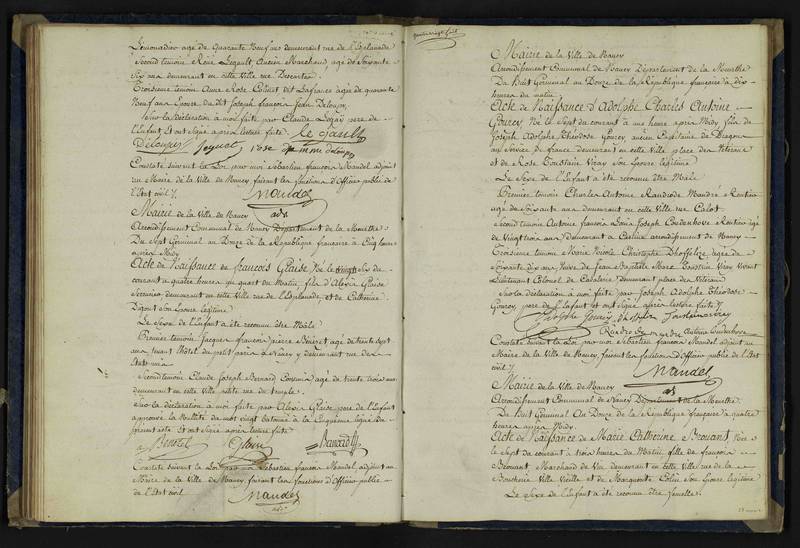 Limonadier agé de Quarante Neuf ans demeurant rue de l'Esplanade
Second temoin René Legault Ancien Marchand agé de Soixante
Six ans demeurant en cette Ville rue Descartes.
Troisieme temoin Anne Rose agée de quarante
Neuf ans Epouse du dit Joseph françois Jean
Sur la déclaration à moi faite par Claude père de
l'Enfant Et ont Signé après lecture faite. Le Gault
Constaté Suivant la Loi par moi Sébastien françois Mandel adjoint
au Maire de la Ville de Nancy, faisant les fonctions d'Officier public de
l'Etat Civil
Mandel
adt
Mairie de la Ville de Nancy
Arrondissement Communal de Nancy Département de la Meurthe.
Du Sept Germinal an Douze de la République française à Cinq heures
après Midy
Acte de Naissance de françois Glaise Né le Six du
courant à quatre heures un quart du Matin fils d'Alexis Glaise
Serrurier demeurant en cette Ville rue de l'Esplanade et de Catherine
Son Epouse légitime
Le Sexe de l'Enfant a été reconnu être Mâle.
Premier temoin Jacques françois pierre agé de trente Sept
ans tenant l'hôtel du petit paris à Nancy y demeurant rue des
Etats unis
Second temoin Claude Joseph Bernard agé de trente trois ans
demeurant en cette Ville petite rue du temple.
Sur la déclaration à moi faite par Alexis Glaise pere de l'Enfant
approuvé la Nullité du mot vingt batonné à la Cinquieme ligne du
présent acte Et ont Signé après lecture faite
Glaise
Constaté Suivant la Loi par moi Sébastien françois Mandel, adjoint au
Maire de la Ville de Nancy, faisant les fonctions d'Officier public
de l'Etat civil
Mandel
adt
Mairie de la Ville de Nancy
Arrondissement Communal de Nancy Département de la Meurthe
Du Huit Germinal an Douze de la République française à dix
heures du matin
Acte de Naissance d'Adolphe Charles Antoine
Gourcy Né le Sept du courant à une heure après Midy fils de
Joseph Adolphe Théodose Gourcy, ancien Capitaine de Dragons
au Service de france demeurant en cette Ville place des Vétérans
et de Rose Constance Vitry Son Epouse légitime
Le Sexe de l'Enfant a été reconnu être Mâle
Premier temoin Charles Antoine Mandré Rentier
agé de Soixante ans demeurant en cette Ville rue Callot
Second temoin Antoine françois Louis Joseph Rentier agé
de Vingt trois ans demeurant à arrondissement de Nancy
Troisieme temoin Marie Nicole Christophe agée de
Soixante dix ans Veuve de Jean Baptiste Marc Toustain Viray Vivant
Lieutenant Colonel de Cavalerie demeurant place des Vétérans
Sur la déclaration à moi faite par Joseph Adolphe Théodose
Gourcy, pere de l'Enfant et ont Signé après lecture faite
Constaté Suivant la Loi par moi Sébastien françois Mandel adjoint au
Maire de la Ville de Nancy, faisant les fonctions d'Officier public de l'Etat
civil
Mandel
adt
Mairie de la Ville de Nancy
Arrondissement Communal de Nancy Département de la Meurthe.
Du Huit Germinal an Douze de la République française à quatre
heures après Midy
Acte de Naissance de Marie Catherine Brouant Née
le Sept du courant à trois heures du Matin fille de françois
Brouant, Marchand de Vin demeurant en cette Ville rue de la
Boucherie Ville Vieille et de Marguerite Son Epouse légitime
Le Sexe de l'Enfant a été reconnu être femelle.